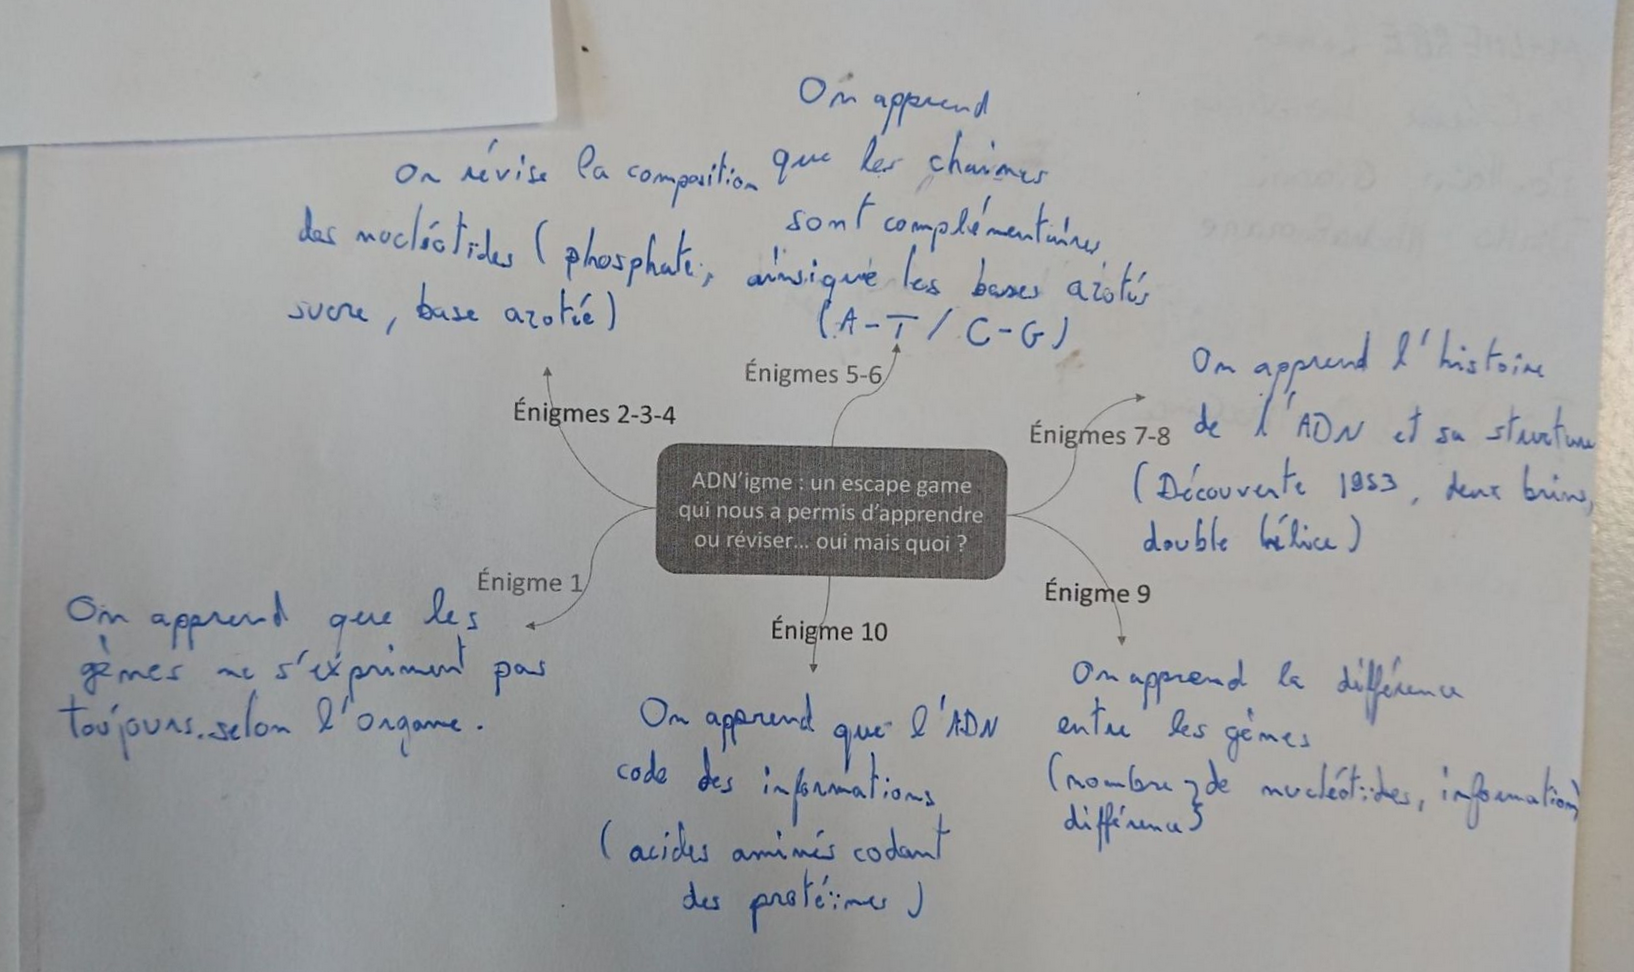 On apprend
que les chaînes
sont complémentaires
ainsi que les bases azotés
(A-T / C-G)
Énigmes 5-6
On révise la composition
des nucléotides (phosphate,
sucre, base azotée)
Énigmes 2-3-4
On apprend l'histoire
de l'ADN et sa structure
(Découverte 1953, deux brins,
double hélice)
Énigmes 7-8
ADN'igme : un escape game
qui nous a permis d'apprendre
ou réviser... oui mais quoi ?
Énigme 1
On apprend que les
gènes ne s'expriment pas
toujours selon l'organe.
Énigme 10
On apprend que l'ADN
code des informations
(acides aminés codant
des protéines)
Énigme 9
On apprend la différence
entre les gènes
(nombre de nucléotides, information
différence)